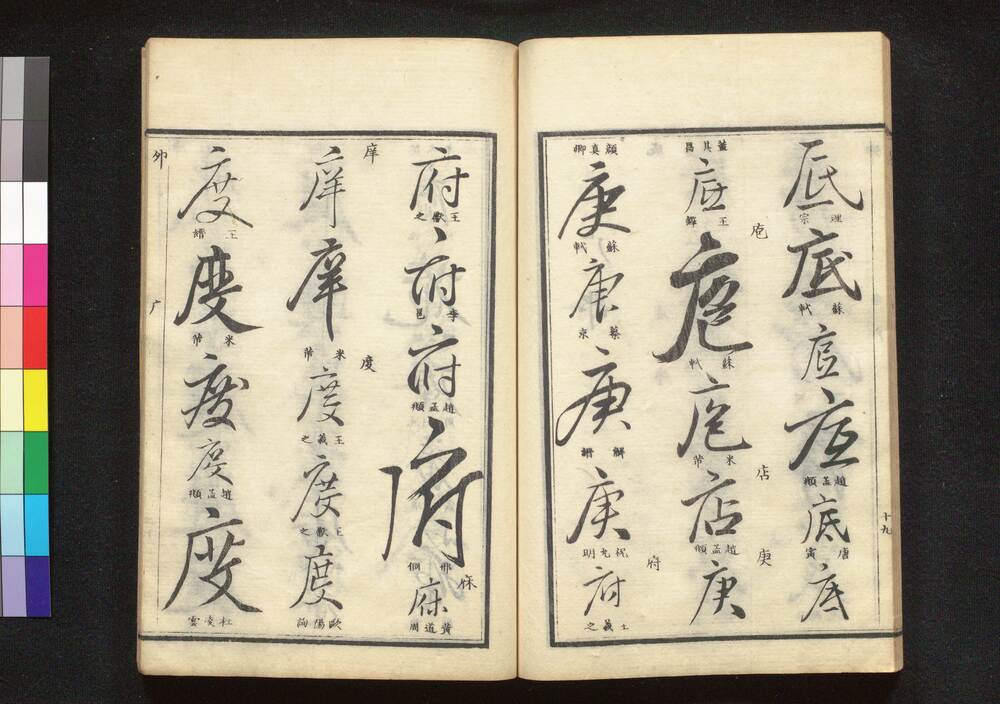 底 理宗
底 蘇軾
底
底 趙孟頫
底 唐寅
底 董其昌
底 王鐸
庖
庖 蘇軾
庖 米芾
店
店 趙孟頫
庚
庚 顏真卿
庚 蘇軾
庚 蔡京
庚 解縉
庚 祝允明
府
府 王羲之
十九
府 王獻之
府 李邕
府 趙孟頫
府 邢侗
庥
庥 黃道周
庠
庠
庠 米芾
度
度 王羲之
度 王獻之
度 歐陽詢
度 王縉
度 米芾
度
度 趙孟頫
度 杜凌雲
广